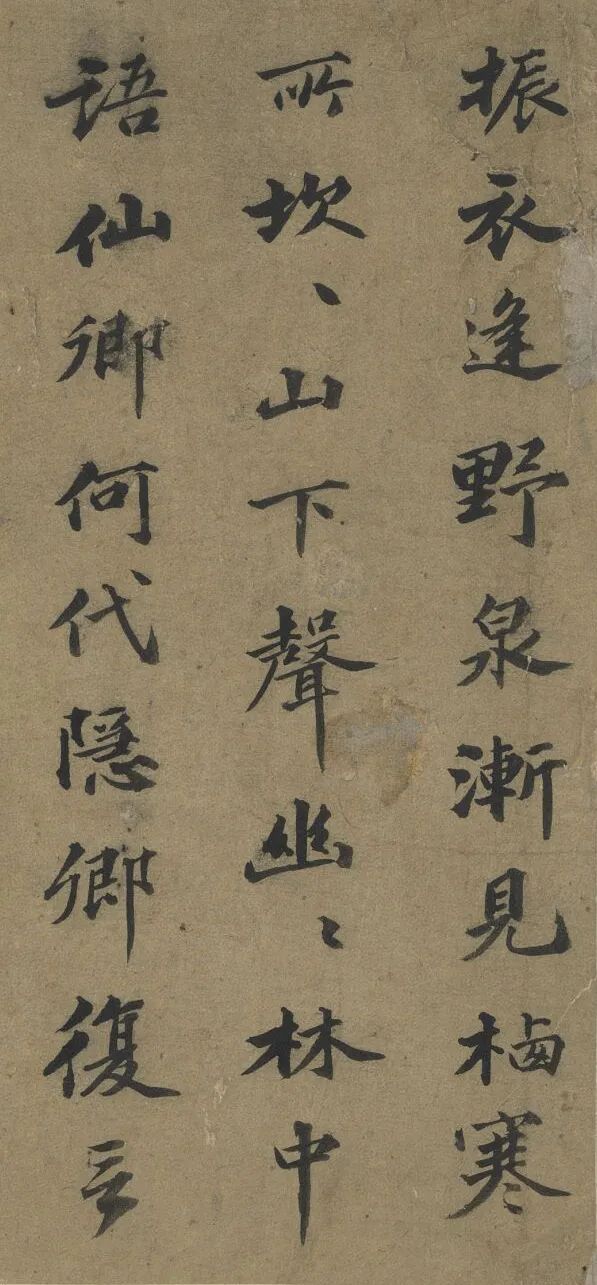 振衣逢野泉漸見栖寒
所坎、山下聲幽、林中
語仙鄉何代隱鄉復言